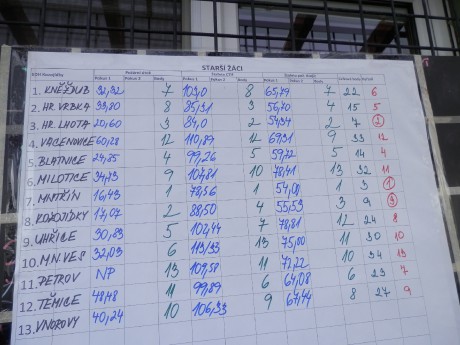 STARŠÍ ŽÁCI
Požární útok Štafeta CTIF
Pokus 1 Pokus 2 Body Pokus 1 Body Pokus 1 Body
1. KNĚŽDUB 32,32 7 103,0 8 65,79 7 22 6
2. HR. VRBKA 33,80 8 85,31 3 56,70 4 15 5
3. HR. LHOTA 20,60 3 84,0 2 54,94 2 7 2
4. VACENOVICE 60,28 12 110,89 12 69,31 9 33 12
5. BLATNICE 24,85 4 99,26 5 59,72 5 14 4
6. MILOTICE 34,23 9 104,81 10 78,41 13 32 11
7. MUTĚNÍN 16,43 1 78,56 1 54,00 1 3 1
8. ROZOJÍDKY 17,07 2 88,50 4 55,59 3 9 3
9. UHŘICE 30,83 5 102,44 7 78,81 12 24 8
10. MN. VES 32,03 6 113,33 13 75,00 11 30 10
11. PETROV NP 13 107,58 11 71,22 10 34 13
12. TĚMICE 48,48 11 99,89 6 64,08 6 23 7
13. VNOROVY 40,24 10 106,33 9 67,44 8 27 9